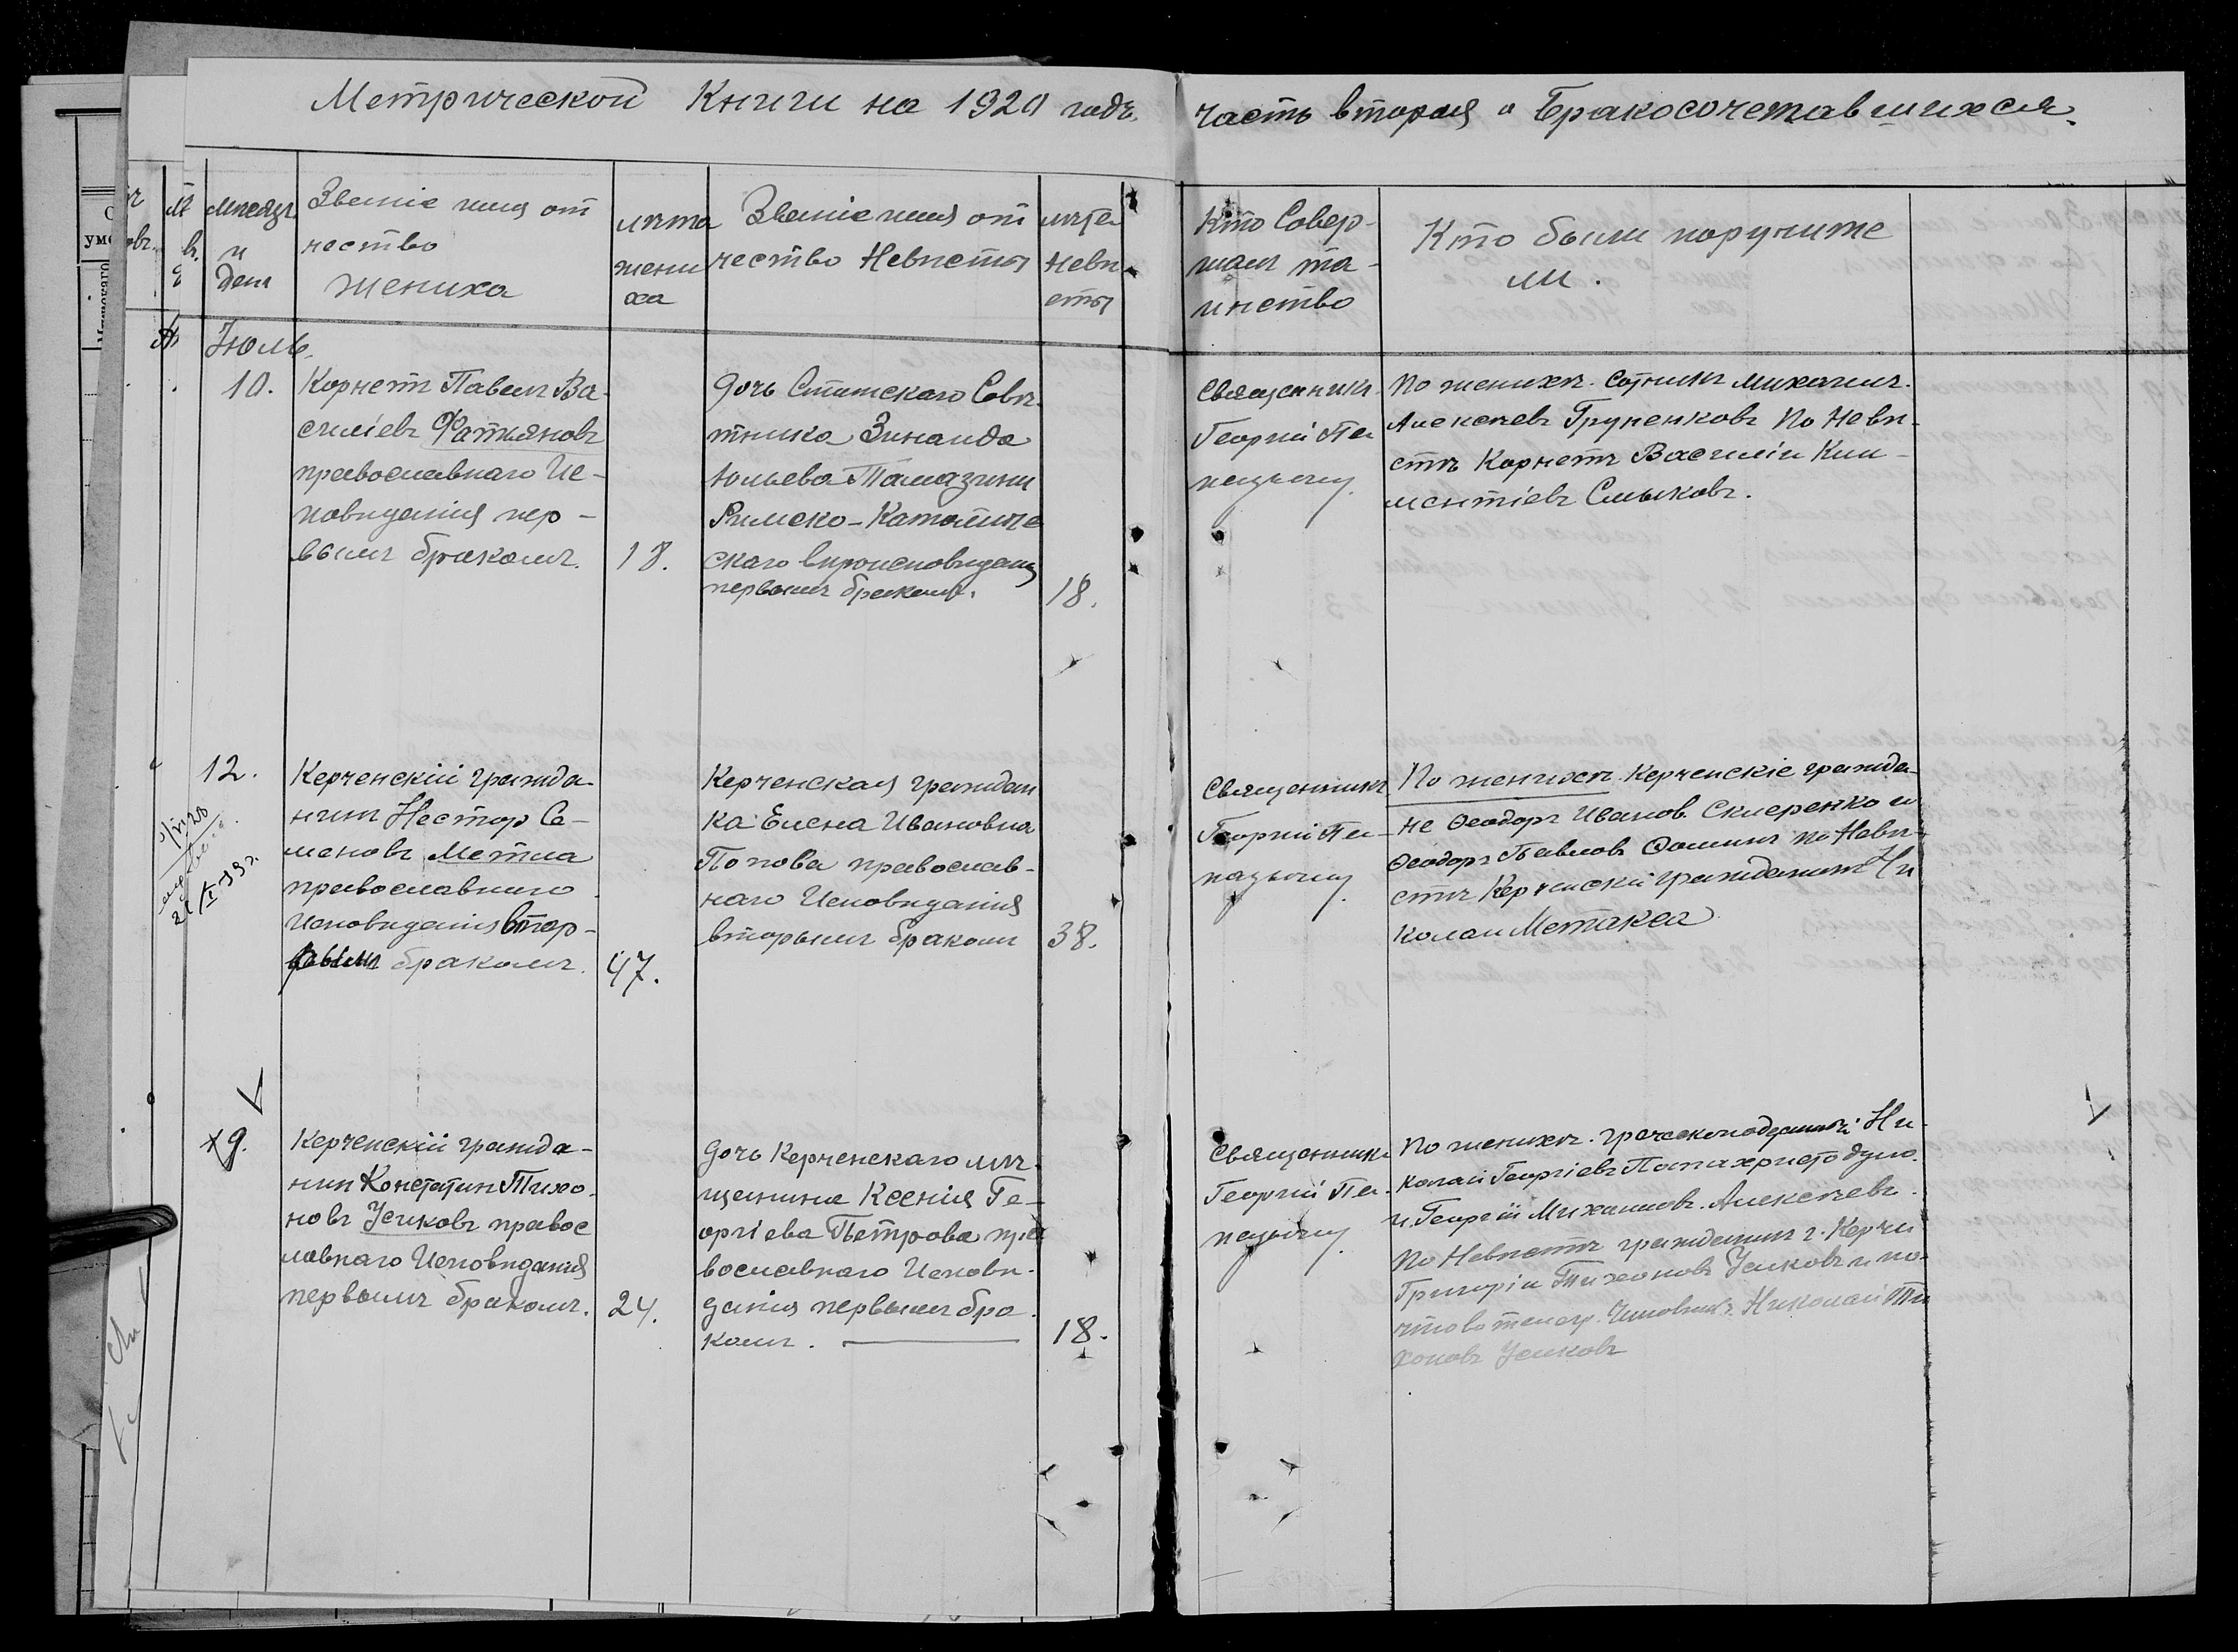 Метрической Книги на 1920 годъ часть вторая о Бракосочетавшихся.
Мѣсяцъ
и
день
Званіе имя от
чество
жениха
лѣта
жени
ха
Званіе имя от
чество Невѣсты
лѣта
невѣ
сты
Кто Совер-
шалъ та-
инство
Кто были поручите
ли.
Іюль.
10.
Корнетъ Павелъ Ва-
силіевъ Фатьяновъ
православнаго Ис-
повѣданія пер-
вымъ бракомъ.
18.
Дочь Статскаго Совѣ-
тника Зинаида
Юльева Тамазини
Римско-Католиче
скаго вѣроисповѣданія
первымъ бракомъ.
18.
Священникъ
Георгій Па
По женихѣ. Сотникъ Михаилъ
Алексѣевъ Груненковъ По Невѣ-
стѣ Корнетъ Василій Кли-
ментіевъ Смыковъ.
12.
Керченскій гражда-
нинъ Нестор Се-
меновъ Метла
православнаго
исповѣданія втор-
бракомъ.
47.
Керченская граждан
ка Елена Ивановна
Попова православ-
наго Исповѣданія
вторымъ бракомъ
38.
Священникъ
Георгій Па-
По женихѣ Керченскіе гражда-
не Ѳеодоръ Иванов. Скleренко и
Ѳеодоръ Павловъ Ѳоминъ по Невѣ-
стѣ Керченскій гражданинъ Ни
колай Метакса
19.
Керченскій гражда-
нин Констатин Тихо-
новъ Усиковъ правос
лавнаго Исповѣданія
первымъ бракомъ.
24.
Дочь Керченскаго мѣ-
щанина Ксенія Ге-
оргіева Петрова пра
вославнаго Исповѣ-
данія первымъ бра-
комъ.
18.
Священникъ
Георгій Па-
По женихѣ. греческоподданный Ни-
колай Георгіевъ Папахристодуло
и Георгій Михаиловъ Алексѣевъ.
По Невѣстѣ гражданинъ г. Керчи
Григорій Тихоновъ Усиковъ и по-
чтово телегр. Чиновникъ Николай Ти
хоновъ Усиковъ